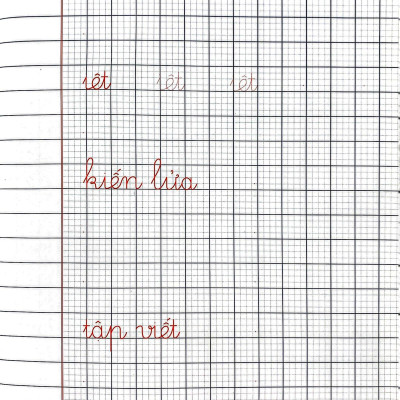 iêt iêt iêt
kiến lửa
tập viết